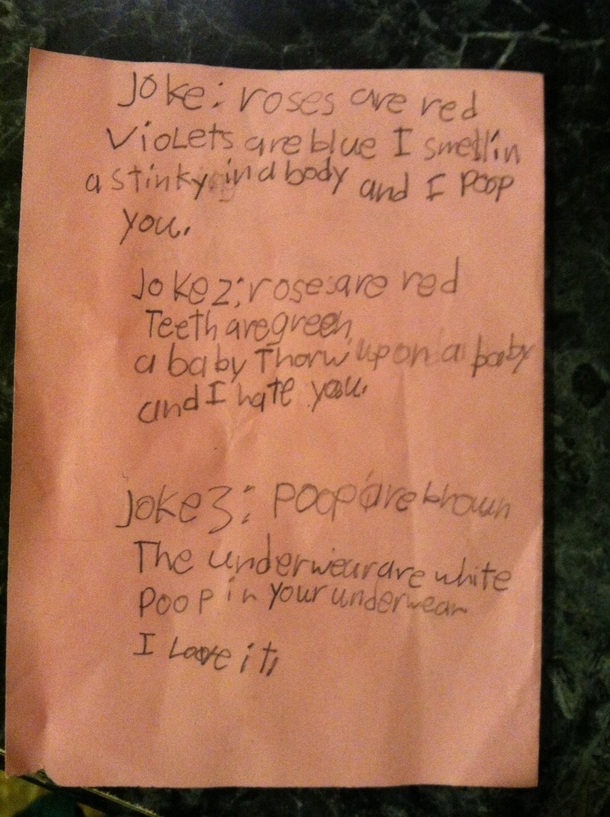 Joke: roses are red
Violets are blue I smellin
a stinky in a body and I Poop
you.
Joke 2: roses are red
Teeth are green
a baby Thorw up on a baby
and I hate you.
Joke 3: Poop are brown
The underwear are white
Poop in your underwear
I Love it